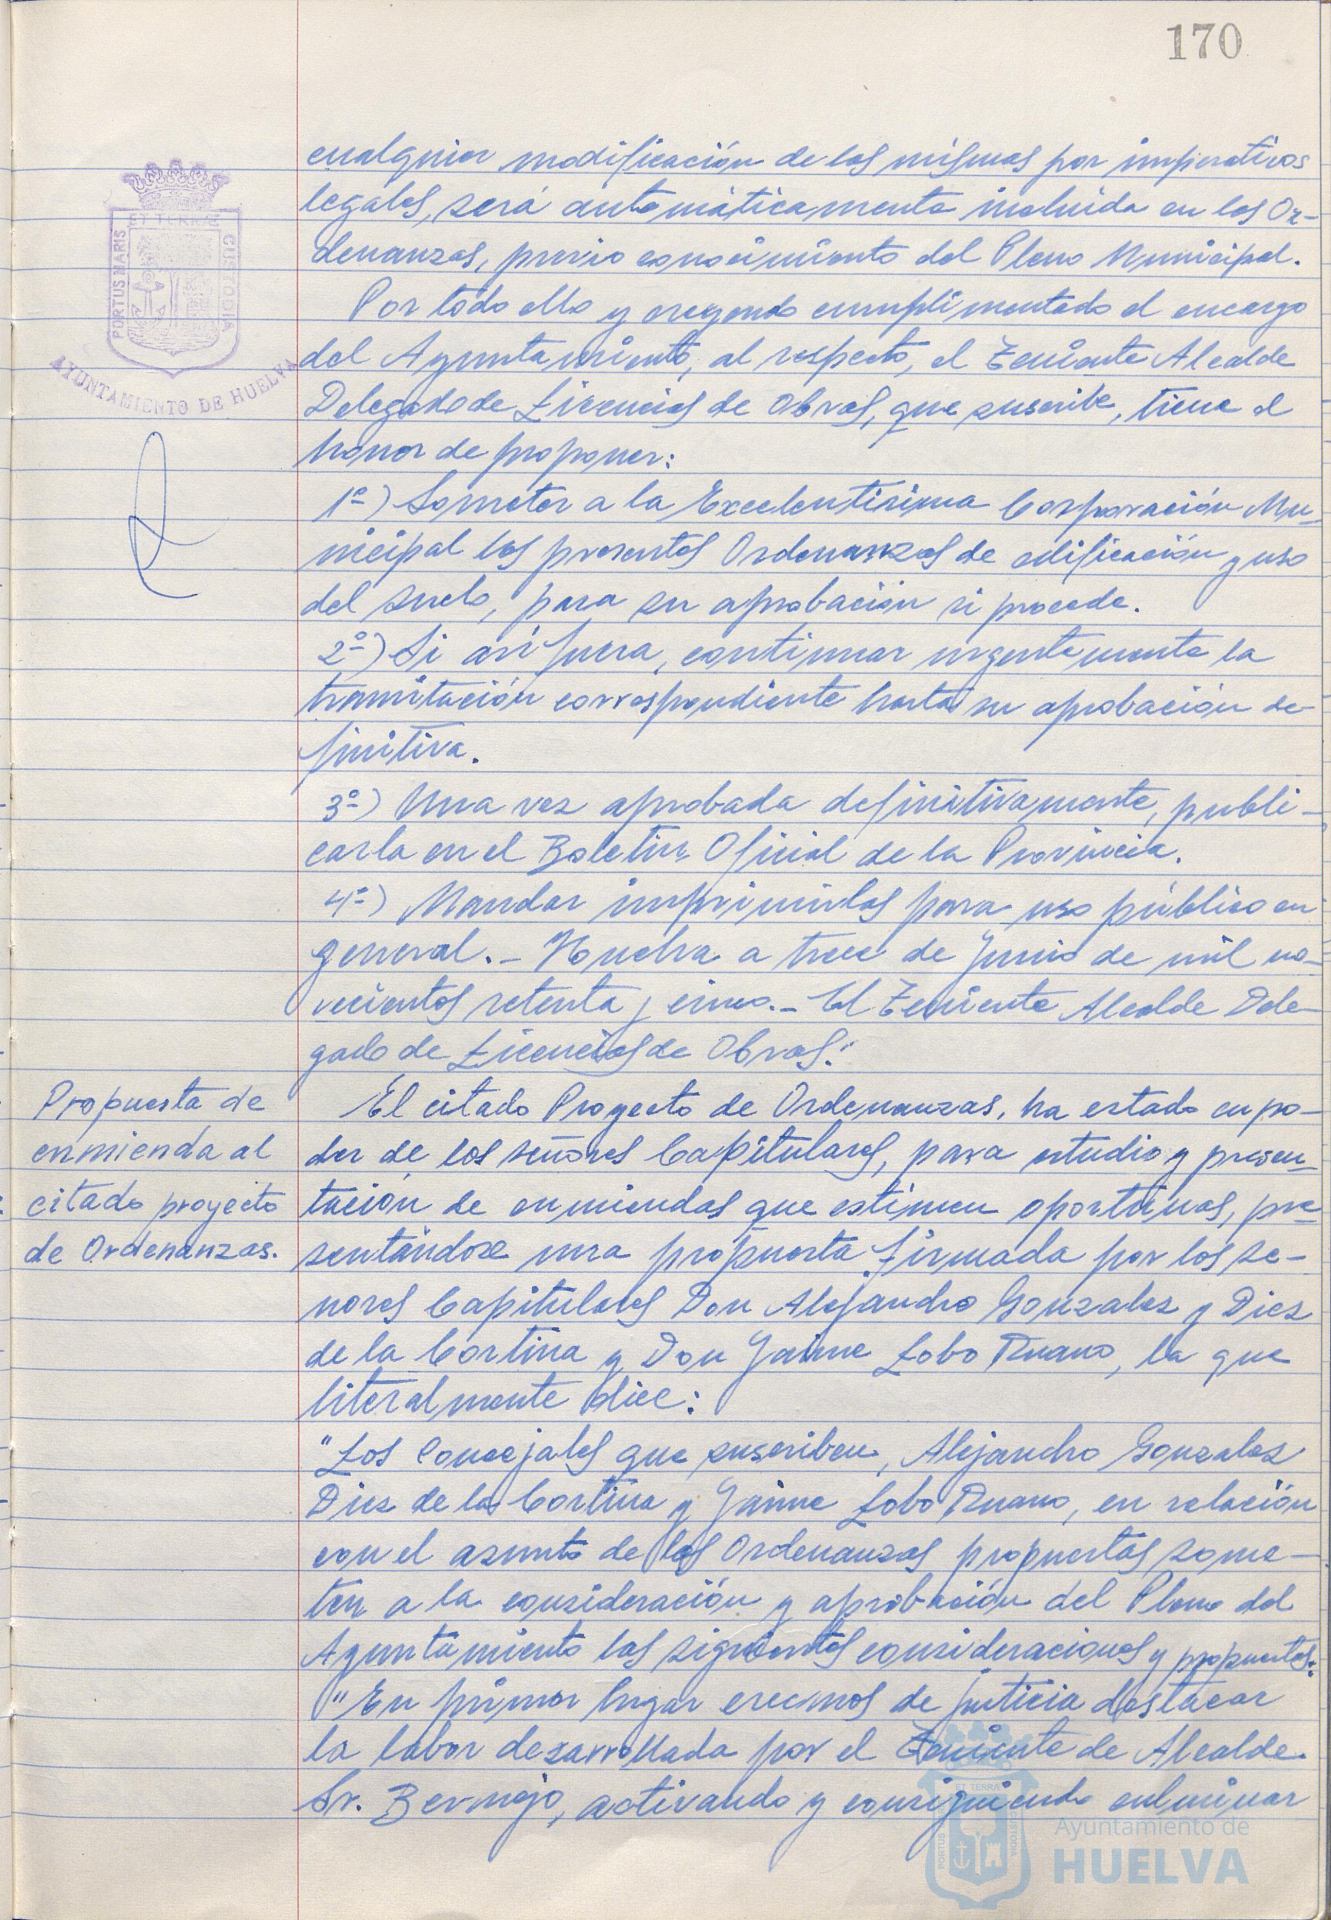 170
cualquier modificación de las mismas por imperativos
legales, será automáticamente incluida en las Or-
denanzas, previo conocimiento del Pleno Municipal.
Por todo ello y creyendo cumplimentado el encargo
del Ayuntamiento, al respecto, el Teniente Alcalde
Delegado de Licencias de Obras, que suscribe, tiene el
honor de proponer:
1º) Someter a la Excelentisima Corporación Mu-
nicipal las presentes Ordenanzas de edificación y uso
del suelo, para su aprobación si procede.
2º) Si asi fuera, continuar urgentemente la
tramitación correspondiente hasta su aprobación de-
finitiva.
3º) Una vez aprobada definitivamente, publi-
carla en el Boletin Oficial de la Provincia.
4º) Mandar imprimirlas para uso público en
general.- Huelva a trece de Junio de mil no-
vecientos setenta y cinco.- El Teniente Alcalde Dele-
gado de Licencias de Obras."
Propuesta de
enmienda al
citado proyecto
de Ordenanzas.
El citado Proyecto de Ordenanzas, ha estado en po-
der de los señores Capitulares, para estudio y presen-
tación de enmiendas que estimen oportunas, pre-
sentándose una propuesta firmada por los se-
ñores Capitulares Don Alejandro Gonzalez y Diez
de la Cortina y Don Jaime Lobo Ruano, la que
literalmente dice:
"Los Concejales que suscriben, Alejandro Gonzalez
Diez de la Cortina y Jaime Lobo Ruano, en relación
con el asunto de las Ordenanzas propuestas some-
ten a la consideración y aprobación del Pleno del
Ayuntamiento las siguientes consideraciones y propuestas:
"En primer lugar creemos de justicia destacar
la labor desarrollada por el Teniente de Alcalde
Sr. Bermejo, activando y consiguiendo culminar
ET TERRÆ
PORTUS MARIS
CUSTODIA
AYUNTAMIENTO DE HUELVA
Ayuntamiento de
HUELVA